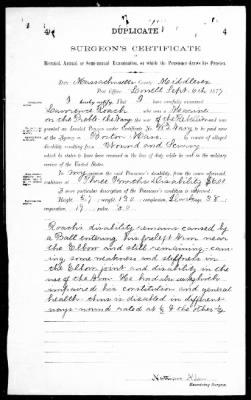 4
DUPLICATE
4
SURGEON'S CERTIFICATE
Biennial, Annual or Semi-annual Examination, on which the Pensioner draws his Pension.
State Massachusetts County: Middlesex
Post Office: Lowell Sept. 6th 1877
I hereby certify, That I have carefully examined
Lawrence Roach who was a Marine
on the in the war of the Rebellion and was
granted an Invalid Pension under Certificate No. Navy to be paid at
the Agency in Boston Mass. by reason of alleged
disability resulting from Wound and Scurvy
which he states to have been received in the line of duty while he was in the military
service of the United States.
In my opinion the said Pensioner's disability, from the cause aforesaid,
continues at Three Fourths Disability $6.00
A more particular description of the Pensioner's condition is subjoined:
Height, 5.7 weight, 130 complexion, age, 38
respiration, 17 pulse, 60
Roach's disability remains caused
by a Ball entering his left Arm near
the Elbow and still remaining cau-
sing some weakness and stiffness in
the Elbow joint and disability in the
use of the Arm. He had also scurvy which
impaired his constitution and general
health thus is disabled in different
ways wound rated at the other
Nathan Allen
Examining Surgeon.